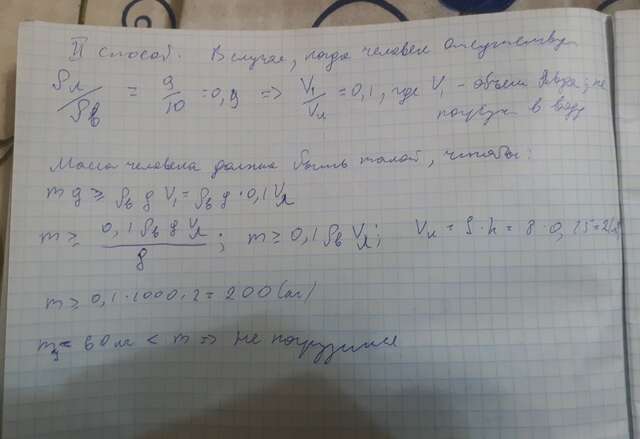 II способ. В случае, когда человек отсутствует
ρл/ρв = 9/10 = 0,9 => V₁/Vл = 0,1, где V₁ - объем льда, не
погруж в воду
Масса человека должна быть такой, чтобы:
mg ≥ ρв g V₁ = ρв g · 0,1 Vл
m ≥ 0,1 ρв g Vл / g ; m ≥ 0,1 ρв Vл; Vл = S · h = 8 · 0,25 = 2
m ≥ 0,1 · 1000 · 2 = 200 (кг)
mч = 60 кг < m => не погрузится